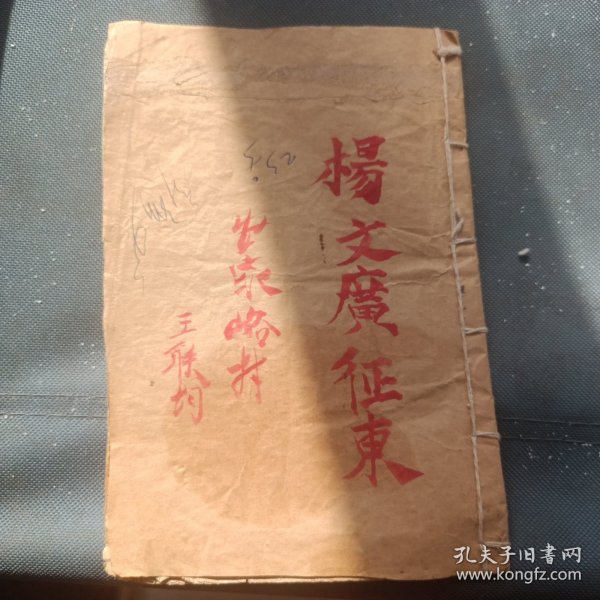 楊文廣征東
峪村
王联均
孔夫子旧书网
www.kongfz.com